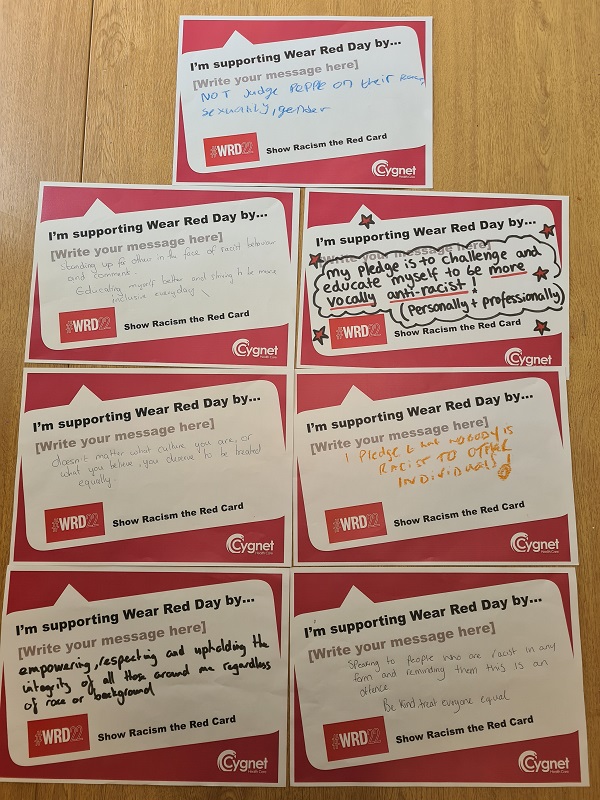 I'm supporting Wear Red Day by...
[Write your message here]
NOT Judge People on their Race,
sexuality, gender
#WRD22
Show Racism the Red Card
Cygnet
Health Care
I'm supporting Wear Red Day by...
[Write your message here]
Standing up for others in the face of racist behaviour
and comment.
Educating myself better and striving to be more
inclusive everyday.
#WRD22
Show Racism the Red Card
Cygnet
Health Care
I'm supporting Wear Red Day by...
[Write your message here]
my pledge is to challenge and
educate myself to be more
vocally anti-racist!
(Personally + professionally)
#WRD22
Show Racism the Red Card
Cygnet
Health Care
I'm supporting Wear Red Day by...
[Write your message here]
doesn't matter what culture you are, or
what you believe, you deserve to be treated
equally.
#WRD22
Show Racism the Red Card
Cygnet
Health Care
I'm supporting Wear Red Day by...
[Write your message here]
I Pledge that NOBODY is
RACIST TO OTHER
INDIVIDUALS!
#WRD22
Show Racism the Red Card
Cygnet
Health Care
I'm supporting Wear Red Day by...
[Write your message here]
empowering, respecting and upholding the
integrity of all those around me regardless
of race or background
#WRD22
Show Racism the Red Card
Cygnet
Health Care
I'm supporting Wear Red Day by...
[Write your message here]
Speaking to people who are racist in any
form and reminding them this is an
offence
Be kind, treat everyone equal
#WRD22
Show Racism the Red Card
Cygnet
Health Care